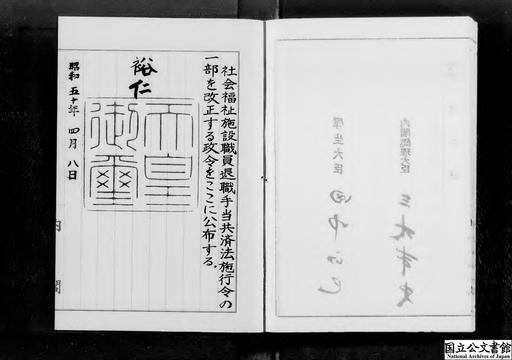 社会福祉施設職員退職手当共済法施行令の
一部を改正する政令をここに公布する。
裕仁
天皇
御璽
昭和五十年四月八日
内閣
内閣総理大臣
厚生大臣
国立公文書館
National Archives of Japan